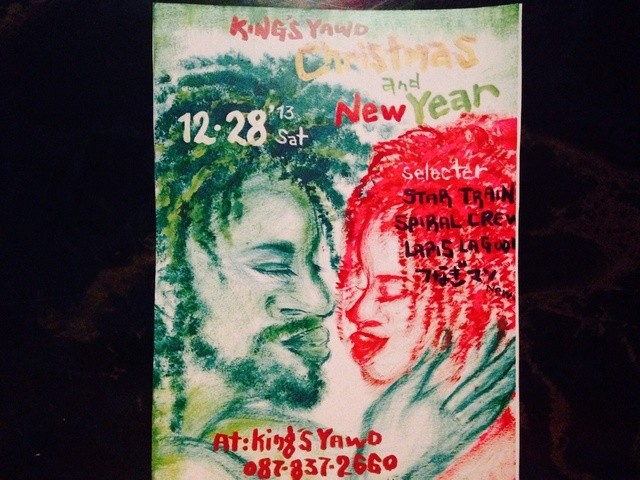 KiNG'S YAWD
Christmas
and
New Year
12.28 '13
Sat
Selecter
STAR TRAIN
SPIRAL CREW
LAPIS LAGOON
つなぎマン
New
At: King'S YAWD
087-837-2660